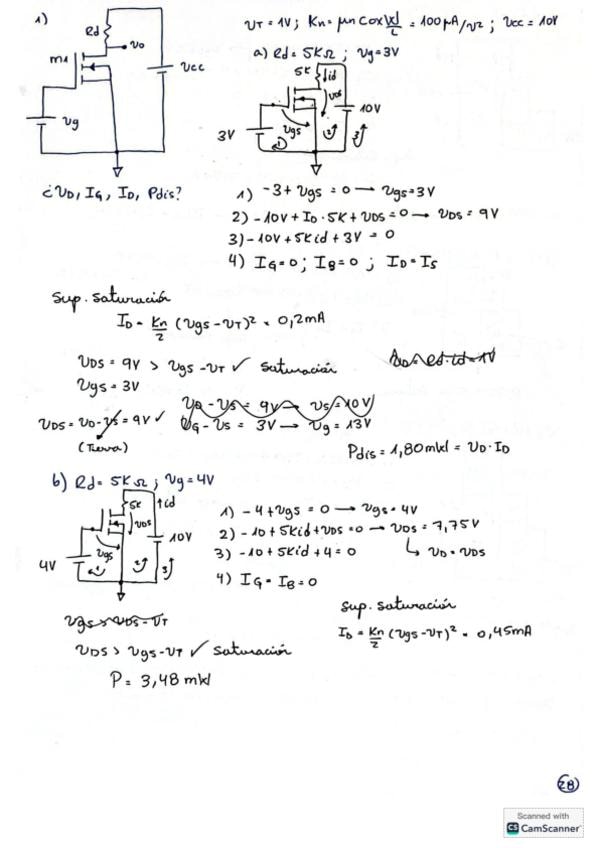 1)
VT = 1V; Kn = μn Cox W/L = 100μA/V2; Vcc = 10V
Rd
Vo
a) Rd = 5KΩ; Vg = 3V
M1
Vcc
5K
id
VDS
10V
Vg
3V
Vgs
1
2
3
¿VD, IG, ID, Pdis?
1) -3 + Vgs = 0 → Vgs = 3V
2) -10V + ID · 5K + VDS = 0 → VDS = 9V
3) -10V + 5Kid + 3V = 0
4) IG = 0; IB = 0; ID = IS
Sup. saturación
ID = Kn/2 (Vgs - VT)² = 0,2mA
VDS = 9V > Vgs - VT ✓ saturación
Vgs = 3V
VDS = VD - VS = 9V ✓
VD - VS = 9V → VS = 10V
(Tierra)
VG - VS = 3V → Vg = 13V
Pdis = 1,80mW = VD · ID
b) Rd = 5KΩ; Vg = 4V
5K
id
VDS
10V
4V
Vgs
1
2
3
1) -4 + Vgs = 0 → Vgs = 4V
2) -10 + 5Kid + VDS = 0 → VDS = 7,75V
3) -10 + 5Kid + 4 = 0
↳ VD = VDS
4) IG = IB = 0
Sup. saturación
Vgs > VDS - VT
ID = Kn/2 (Vgs - VT)² = 0,45mA
VDS > Vgs - VT ✓ saturación
P = 3,48mW
28
Scanned with
CS CamScanner